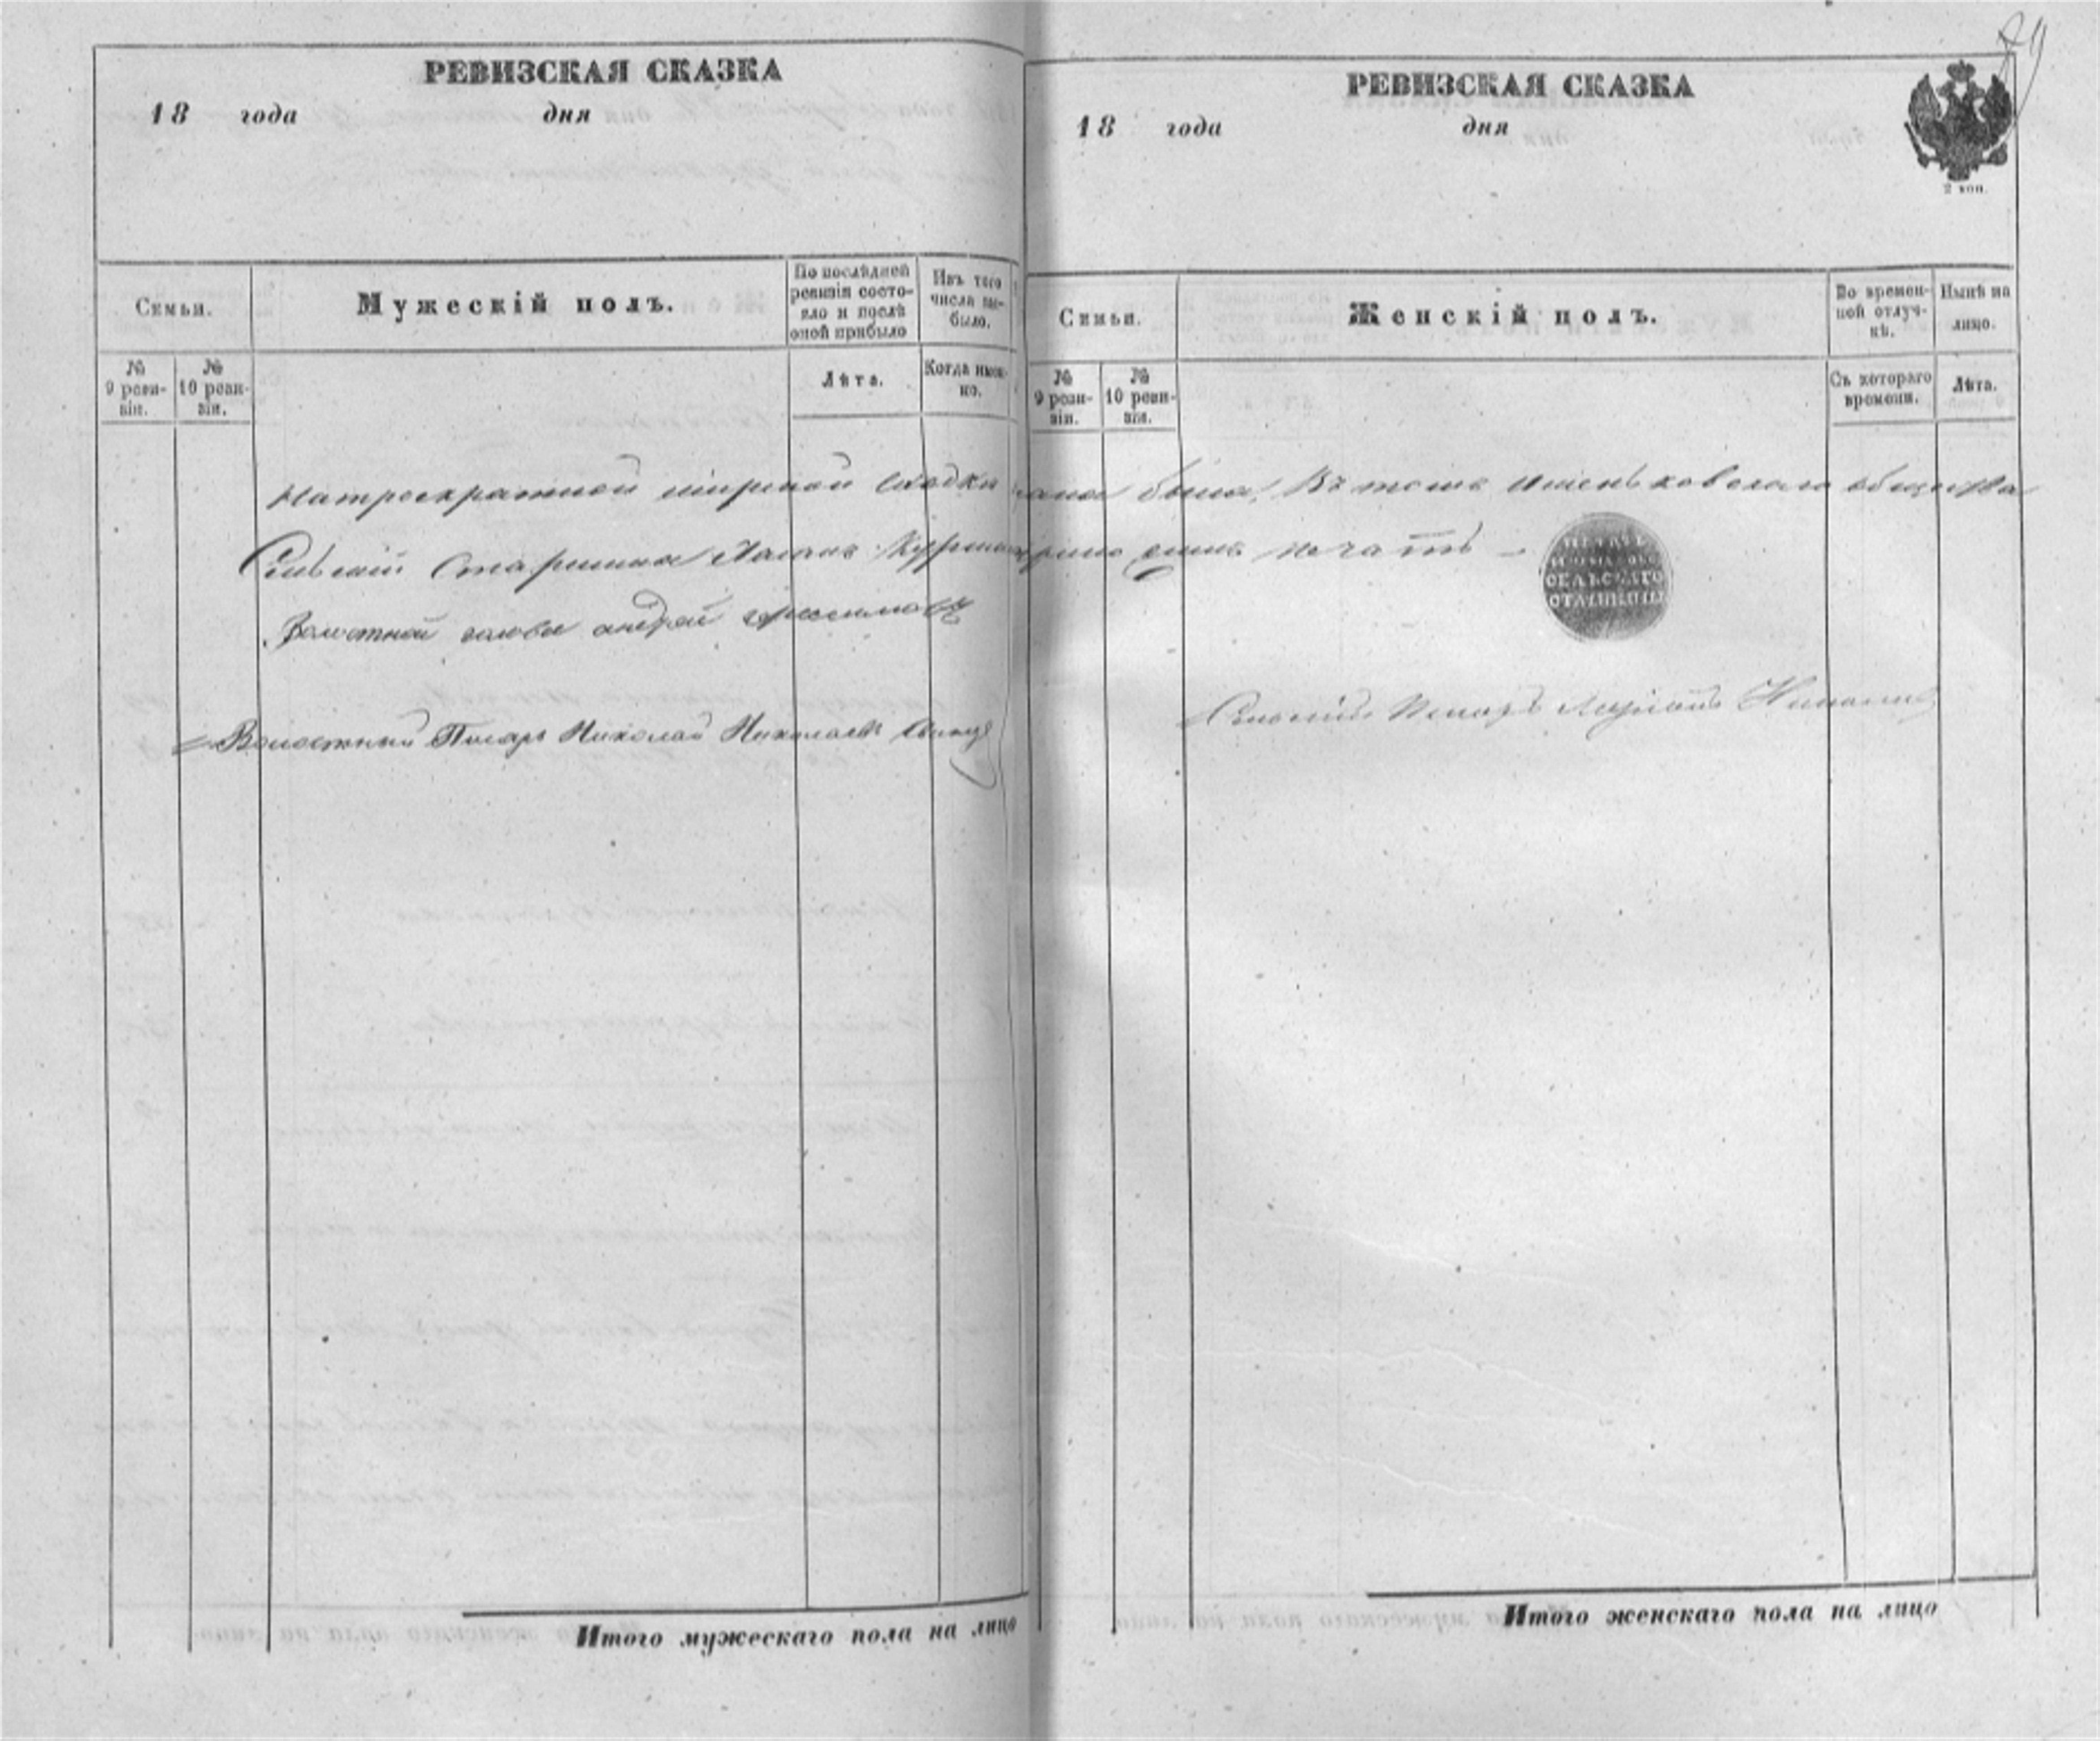 РЕВИЗСКАЯ СКАЗКА
18 года дня
Семьи.
Мужескій полъ.
По послѣдней ревизіи состояло и послѣ оной прибыло
Изъ того числа выбыло.
№ 9 ревизіи.
№ 10 ревизіи.
Лѣта.
Когда именно.
29
РЕВИЗСКАЯ СКАЗКА
18 года дня
2 коп.
Семьи.
Женскій полъ.
Во временной отлучкѣ.
Нынѣ на лицо.
№ 9 ревизіи.
№ 10 ревизіи.
Съ котораго времени.
Лѣта.
натроекратной мірской сходки была, Въ томъ общества
Сельскій Старшина печать
Волостной голова андрей герасимовъ
Волостный Писарь Николай Николаевъ
Сельскій Писарь
ПЕЧАТЬ
СЕЛЬСКАГО
СТАРШИНЫ
Итого мужескаго пола на лицо
Итого женскаго пола на лицо